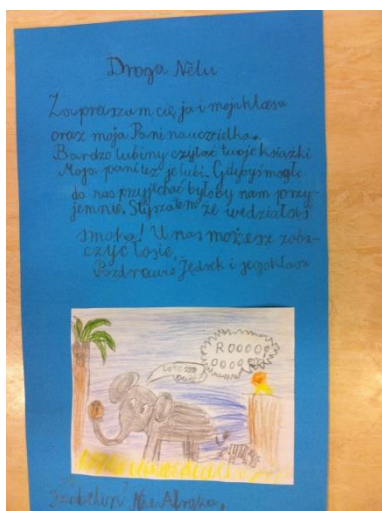 Droga Nelu
Zapraszam cię ja i moja klasa
oraz moja Pani nauczielka.
Bardzo lubimy czytać twoje książki
Moja pani też je lubi. Gdybyś mogła
do nas przyjechać byłoby nam przy-
jemnie. Słyszałem że widziałaś
smoka! U nas możesz zoba-
czyć łosie.
Pozdrawia Jędrek i jego klasa
ROOOOO
OOOO
Izabelin Nie Afryka.